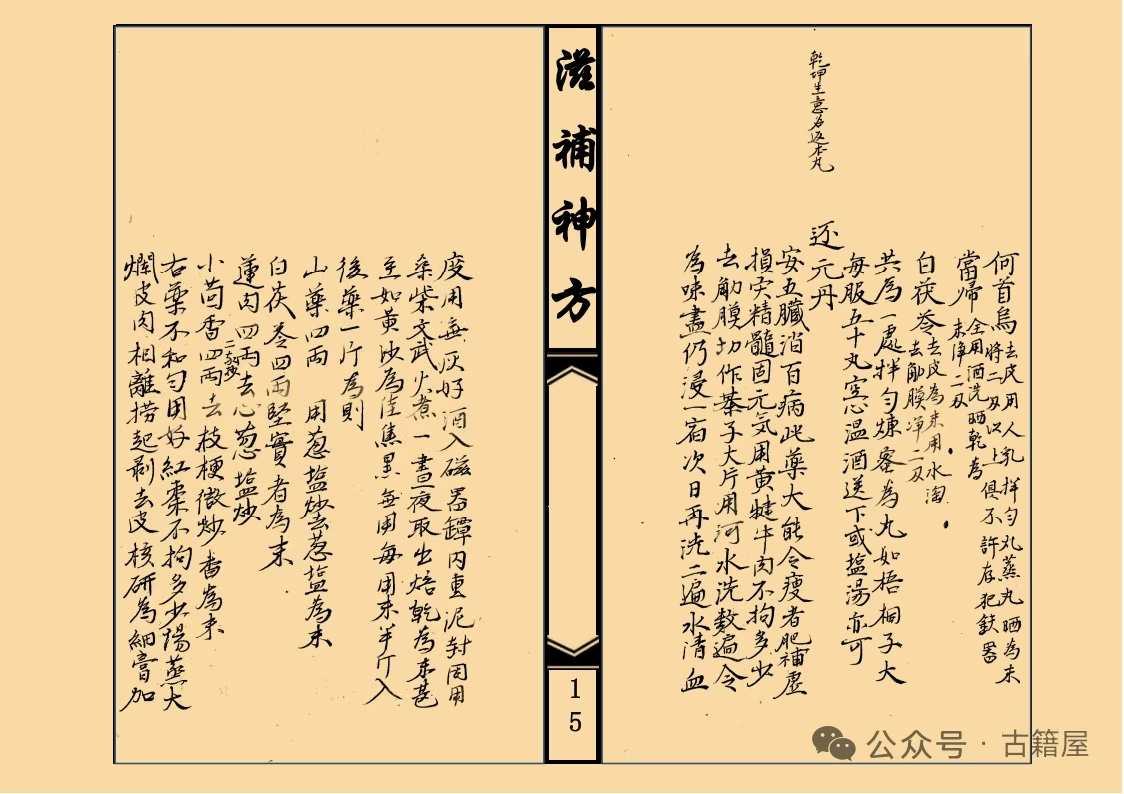 何首烏去皮用人乳拌勻九蒸九晒為末
將二刄以上俱不許存犯鉄器
當帰全用酒洗晒乾為
末淨二刄
白茯苓去皮為末用水淘
去觔膜凈二刄
共為一處拌勻煉蜜為丸如梧桐子大
每服五十丸空心温酒送下或塩湯亦可
乾坤生意名返本丸
还元丹
安五臟消百病此藥大能令瘦者肥補虛
損实精髓固元気用黄犍牛肉不拘多少
去觔膜切作棊子大片用河水洗数遍令
為味盡仍浸一宿次日再洗二遍水清血
滋補神方
15
度用無灰好酒入磁器罈内重泥封固用
桒柴文武火煮一晝夜取出焙乾為末
至如黄沙為佳焦黒無用每用末半斤入
後藥一斤為則
山藥四両 用葱塩炒去葱塩為末
白茯苓四両堅實者為末
蓮肉四両去心葱塩炒
小茴香四両去枝梗微炒香為末
右藥不和勻用好紅棗不拘多少湯蒸大
爛皮肉相離撈起剥去皮核研為細膏加
公众号·古籍屋